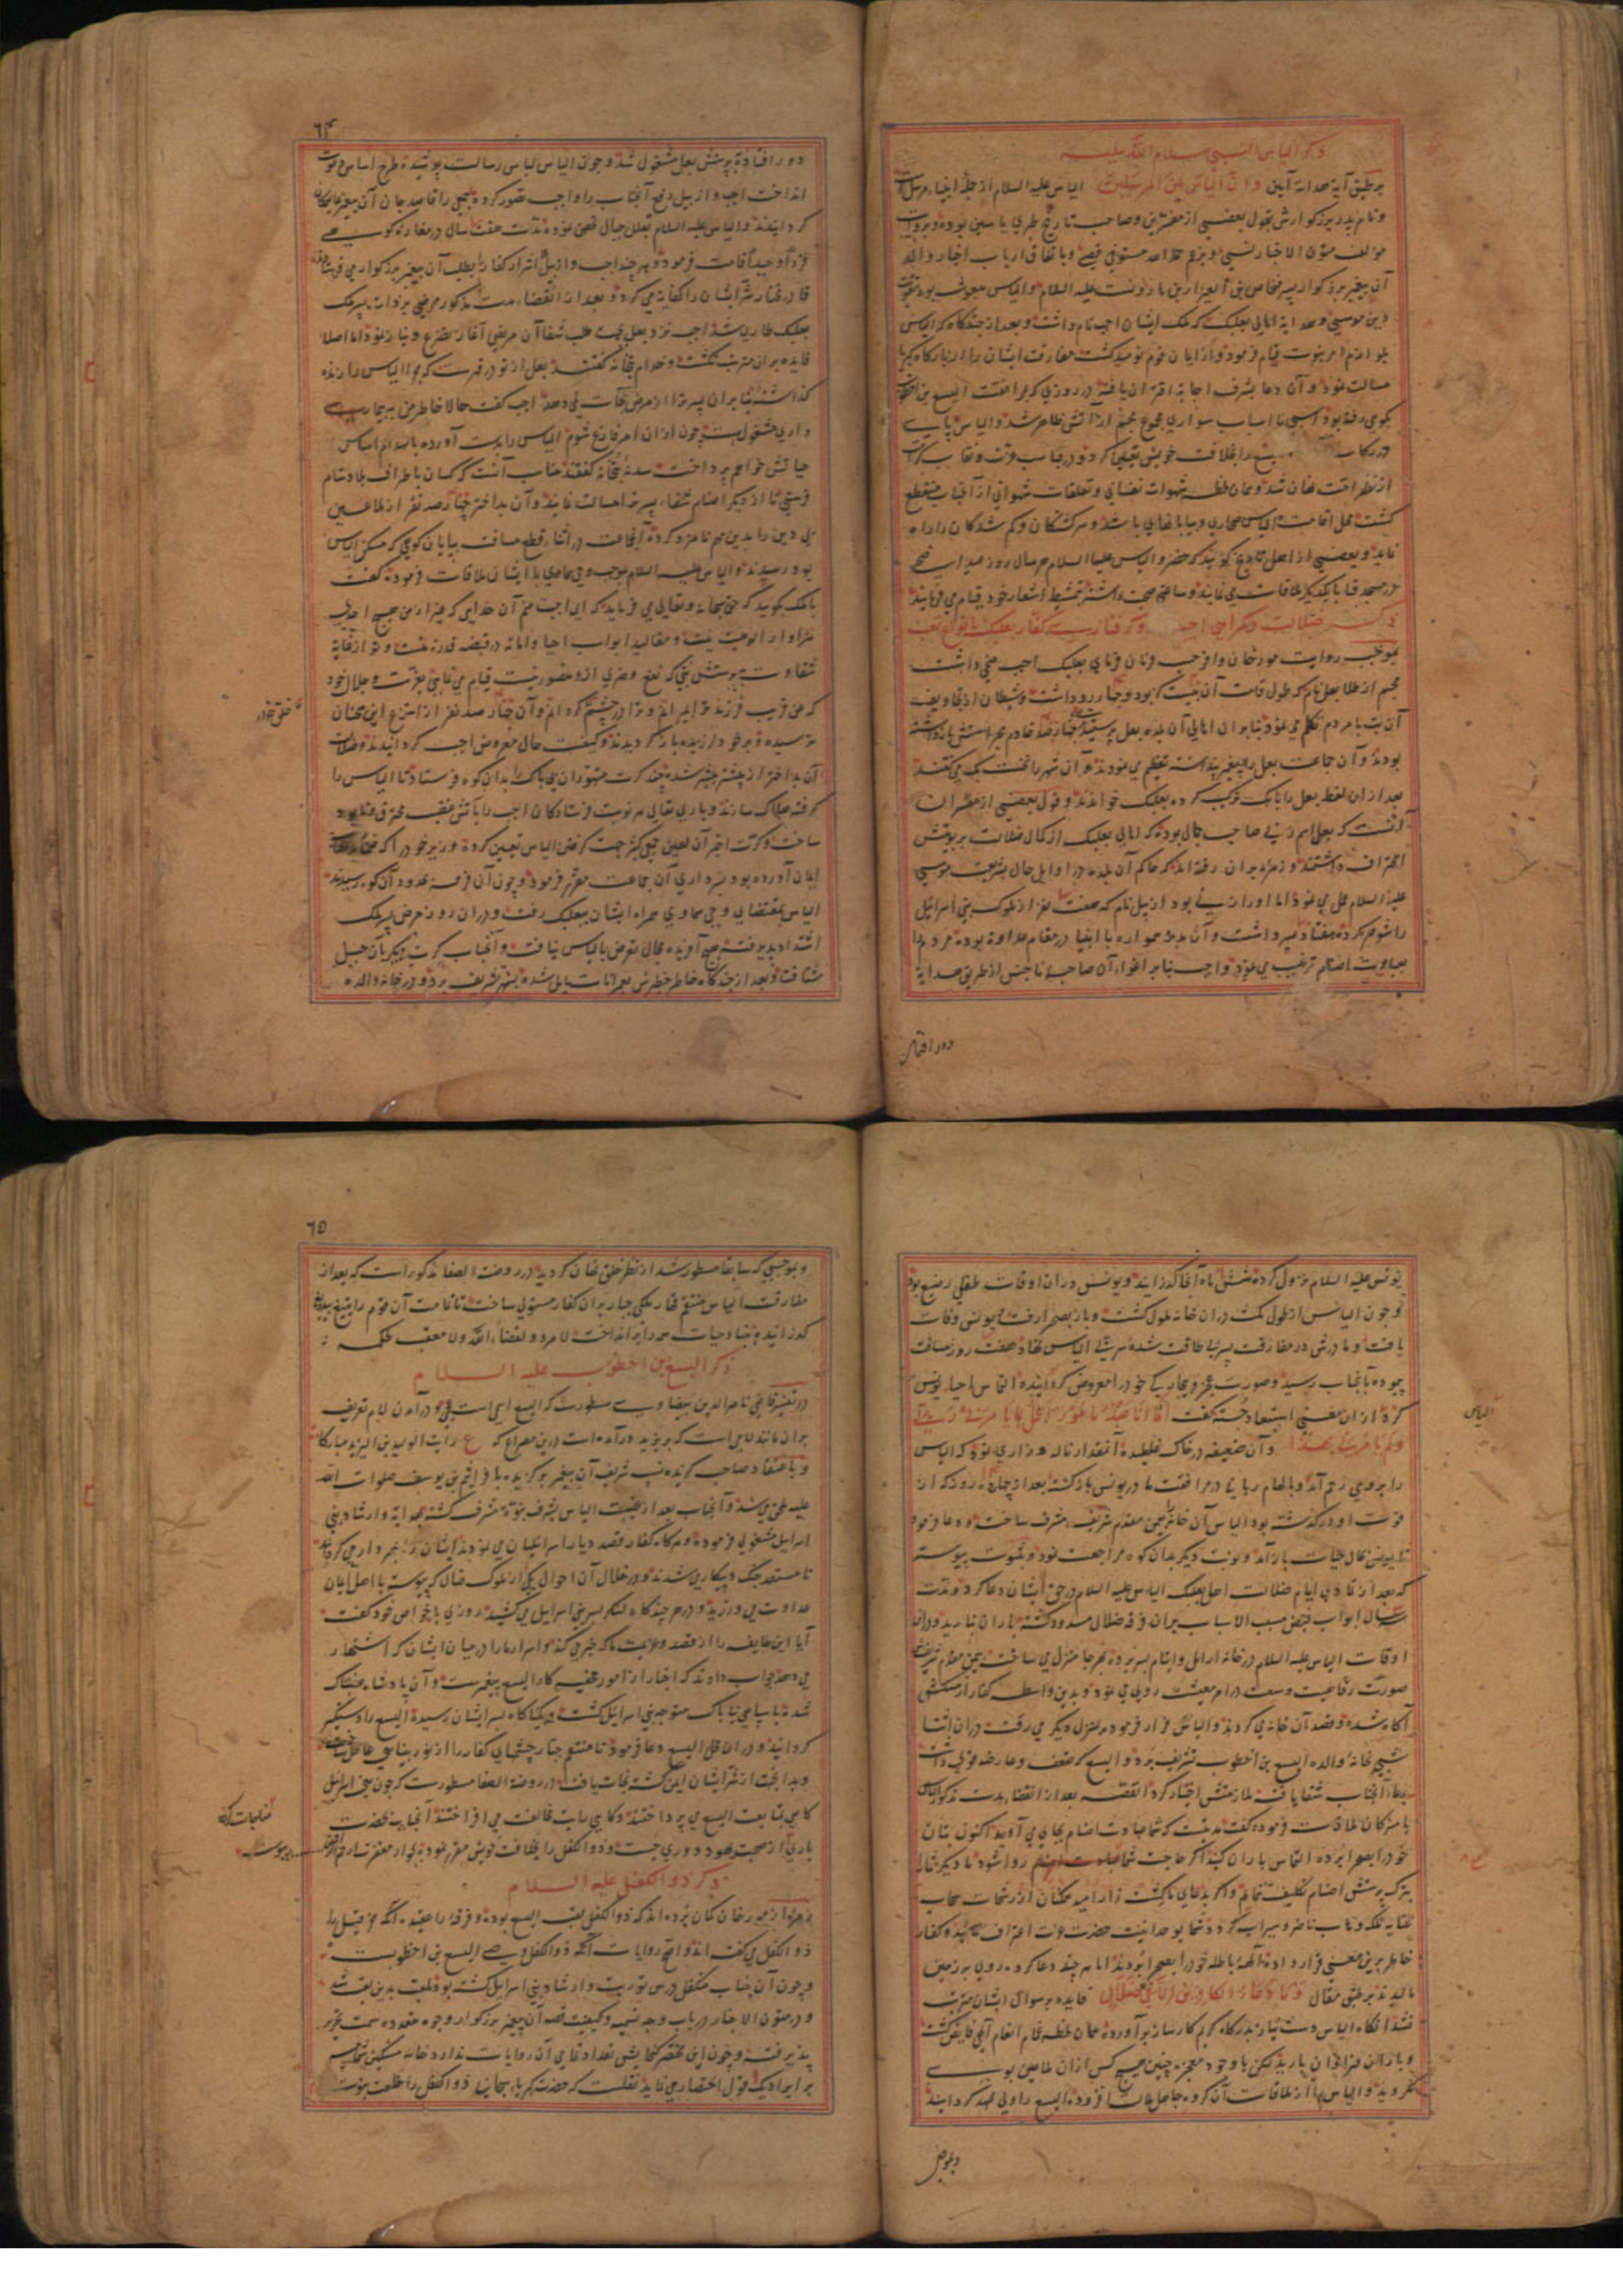 ذکر الیاس النبی سلام الله علیه
بر طبق آیة هدایة آیین وان الیاس لمن المرسلین الیاس علیه السلام از جمله انبیاء مرسل است
ونام پدر بزرکوارش بقول بعضی از مفسرین وصاحب تاریخ طبری یاسین بوده وبروایت
مؤلف متون الاخبار نسبی وبزعم حمد الله مستوفی قیصی وباتفاق ارباب اخبار والد
آن پیغمبر بزرکوار پسر فنحاص بن العیزار بن هارونست علیه السلام والیاس مبعوث بود بتقویت
دین موسی وهدایة اهالی بعلبک که ملک ایشان اجب نام داشت وبعد از چندکاه که الیاس
بلوازم امر نبوت قیام فرمود واز ایمان قوم نومید کشت مفارقت ایشان را از بارکاه کبریا
مسالت نمود وآن دعا بشرف اجابة اقتران یافته در روزی که بمرافقت الیسع بن اخطوب
بکوهی رفته بود اسبی با اسباب سواری مجموع مجسم از آتش ظاهر شد والیاس پای
در رکاب یسع را بخلافت خویش تعیین کرد ودر
از نظر امت نهان شد وهمان لحظه شهوات نفسانی وتعلقات شهوانی از آنجناب منقطع
کشت محل اقامت الیاس صحاری وبیابانهای باشد وسرکشتکان وکم شدکان را راه
نماید وبعضی از اهل تاریخ کویند که خضر والیاس علیهما السلام هر سال روز عید اضحی
در مسجد قبا با یکدیکر ملاقات می نمایند وساعتی صحبت داشته
ذکر ضلالت وکمراهی اجب وکرفتاری کفار بعلبک بانواع تعب
بموجب روایت مورخان وافر حسب ونان فرمای بعلبک اجب صنمی داشت
مجسم از طلا بعل نام که طول قامت آن بیست کز بود وچهار رو داشت وشیطان از تجاویف
آن بت با مردم تکلم می نمود بنابران اهالی آن بلده بعل پرستیدند چهارصد خادم بحراستش بازداشته
بودند وآن جماعت بعل را پیغمبر پنداشته تعظیم می نمودند وآن شهر را نخست بک می کفتند
بعد ازان لفظ بعل را با بک ترکیب کرده بعلبک خواندند وقول بعضی از مفسران
آنست که بعل اسم زنی صاحب جمال بوده که اهالی بعلبک از کمال ضلالت بربوبیتش
اعتراف داشتند وزمره بران رفته اند که حاکم آن بلده در اوایل حال بشریعت موسی
علیه السلام عمل می نمود اما اورا زنی بود ازبیل نام که هفت نفر از ملوک بنی اسرائیل
را شوهر کرده هفتاد پسر داشت وآن همواره با انبیا در مقام عداوة بوده مردم را
بعبادت اصنام ترغیب می نمود واجب بنابر اغواء آن صاحبه ناجنس از طریق هدایة
دور افتاده
٦٤
دور افتاده بپرستش بعل مشغول شد وچون الیاس لباس رسالت پوشیده طرح اساس دعوت
انداخت اجب وازبیل دفع آنجناب را واجب تصور کرده جمعی را قاصد جان آن پیغمبر عالیمکان
کردانیدند والیاس علیه السلام بقلل جبال تحصن نموده مدت هفت سال در مغاره کوهی
فردا وحیدا اقامت فرمود وهر چند اجب وازبیل اشرار کفار را بطلب آن پیغمبر بزرکوار می فرستادند
قادر مختار شر ایشان را کفایة می کرد وبعد از انقضاء مدت مذکور مرضی بر ذات پسر ملک
بعلبک طاری شد اجب نزد بعل بجهت طلب شفا آن مریض آغاز تضرع ونیاز نمود اما اصلا
فایده بران مترتب نکشت وخدام بتخانه کفتند بعل از تو در قهرست که چرا الیاس را زنده
کذاشته بنابران پسر ترا از مرض نجات نمی دهد اجب کفت حالا خاطر من به بیمار
داری مشغولست چون ازان امر فارغ شوم الیاس را بدست آورده بانهدام اساس
حیاتش خواهم پرداخت سدنه بتخانه کفتند مناسب آنست که کسان باطراف بلاد شام
فرستی تا از دیکر اصنام شفاء پسر ترا مسالت نمایند وآن بداختر چهارصد نفر از ملاعین
بی دین را بدین مهم نامزد کرده آنجماعت در اثناء قطع مسافت بپایان کوهی که مسکن الیاس
بود رسیدند والیاس علیه السلام بموجب وحی سماوی با ایشان ملاقات فرموده کفت
با ملک بکویید که حق سبحانه وتعالی می فرماید که ای اجب منم آن خدایی که غیر از من هیچ احدی
سزاوار الوهیت نیست ومقالید ابواب احیا واماته در قبضه قدرة منست وتو از غایة
شقاوت بپرستش بتی که نفع وضری ازو متصور نیست قیام می نمایی بعزت وجلال خود
که عن قریب فرزند ترا بمیرانم وترا در چشم کردانم وآن چهارصد نفر از استماع این سخنان
ترسیده بازکردیدند وکیفیت حال معروض اجب کردانیدند وضلالت
آن بداختر از پیشتر بیشتر شده چند کرت متهوران بی باک بدان کوه فرستاد تا الیاس را
کرفته هلاک سازند وباری تعالی هر نوبت فرستادکان اجب را بآتش غضب محترق ونابود
ساخت وکرت اخیر آن لعین جمعی کثیر جهت کرفتن الیاس تعیین کرده وزیر خود را که
ایمان آورده بود بسرداری آن جماعت مقرر فرمود وچون آن فرقه بحدود آن کوه رسیدند
الیاس بمقتضای وحی سماوی همراه ایشان ببعلبک رفت ودران روز مرض پسر ملک
اشتداد پذیرفته هیچ آفریده مجال تعرض بالیاس نیافت وآنجناب کرت دیکر بآن جبل
شتافت وبعد از چندکاه خاطر خطیرش بعمرانات مایل شده بشهر تشریف برد ودر خانه والده
یونس علیه السلام نزول کرده شش ماه آنجا کذرانید ویونس دران اوقات طفلی رضیع بود
وچون الیاس از طول مکث دران خانه ملول کشت وباز بصحرا رفت یونس وفات
یافت ومادرش در مفارقت پسر بی طاقت شده سر بپی الیاس نهاد وهفت روز مسافت
پیموده بآنجناب رسید وصورت عجز وبیچارکی خود را معروض کردانیده التماس احیاء یونس
کرد ازان معنی استبعاد جسته کفت انا انا عبد مامور اعمل بما یامرنی ربی
ولم یامرنی بهذا وآن ضعیفه در خاک غلطیده آنمقدار ناله وزاری نمود که الیاس
را بر وی رحم آمد وبالهام ربانی در مرافقت مادر یونس بازکشته بعد از چهارده روز که از
فوت او در کذشته بود الیاس آن خانه را بیمن مقدم شریف مشرف ساخت ودعا فرمود
تا یونس بحال حیات باز آمد ونوبت دیکر بدان کوه مراجعت نمود وبثبوت پیوسته
که بعد از تمادی ایام ضلالت اهل بعلبک الیاس علیه السلام در حق ایشان دعا کرد ومدت
سه سال ابواب فیض مسبب الاسباب بران فرقه ضلال مسدود کشته باران نبارید ودران
اوقات الیاس علیه السلام در خانه ارامل وایتام بسر برده بهر جا منزل می ساخت بیمن مقدم شریفش
صورت رفاهیت وسعت در امر معیشت روی می نمود وبدین واسطه کفار از مسکنش
آکاه شده وقصد آن خانه می کردند والیاس فرار فرموده بمنزل دیکر می رفت دران اثنا
شبی بخانه والده الیسع بن اخطوب تشریف برد والیسع که ضعف وعارضه قوی داشت
بدعاء آنجناب شفا یافته ملازمتش اختیار کرد القصه بعد از انقضاء مدت مذکور الیاس
با مشرکان ملاقات فرموده کفت مدتیست که شما عبادت اصنام بجای می آورید اکنون بتان
خود را بصحرا برده التماس باران کنید اکر حاجت شما روا شود تا دیکر شما را
بترک پرستش اصنام تکلیف ننمایم واکر بدعای ما کشت زار امید ممکنان از رشحات سحاب
عنایة ملک وهاب ناضر وسیراب کردد شما بوحدانیت حضرت عزت اعتراف نمایید وکفار
خاطر برین معنی قرار داده آلهه باطله خود را بصحرا بردند اما هر چند دعا کرده روی بر زمین
مالیدند بر طبق مقال وما دعاء الکافرین الا فی ضلال فایده بر سوال ایشان مترتب
نشد آنکاه الیاس دست نیاز بدرکاه کریم کارساز برآورده همان لحظه غمام انعام آلهی فایض کشت
وباران فراوان بارید لیکن با وجود معجزه چنین هیچ کس ازان ملاعین بوی
نکروید والیاس را از ملاقات آن کروه جاهل ملالت افزوده الیسع را ولی عهد کردانید
وبموجبی
الیاس
٦٥
وبموجبی که سابقا مسطور شد از نظر خلق نهان کردید در روضة الصفا مذکور است که بعد از
مفارقت الیاس منتقم قهار ملکی جبار بران کفار مستولی ساخت تا تمامت آن قوم را بتیغ بیدریغ
کذرانیده بنیاد حیات همه را برانداخت لا مرد لقضاء الله ولا معقب لحکمه
ذکر الیسع بن اخطوب علیه السلام
در تفسیر قاضی ناصر الدین بیضاوی مسطورست که الیسع اسمی است عجمی ودرآمدن لام تعریف
بران مانند لامی است که بر یزید درآمده است درین مصراع که ع رایت الولید بن الیزید مبارکا
وباعتقاد صاحب کزیده نسب شریف آن پیغمبر برکزیده بافرائیم بن یوسف صلوات الله
علیه ملحق می شد وآنجناب بعد از غیبت الیاس بشرف نبوة مشرف کشته بهدایة وارشاد بنی
اسرایل مشغولی فرموده وهرکاه کفار قصد دیار اسرائیلیان می نمودند ایشان را خبردار می کردانید
تا مستعد جنک وپیکار می شدند ودر خلال آن احوال یکی از ملوک ضال که پیوسته با اهل ایمان
عداوت می ورزید ودر هر چندکاه لشکر بسر بنی اسرایل می کشید روزی با خواص خود کفت
آیا این طایفه را از قصد وعزیمت ما که خبر می کند واسرار مارا در میان ایشان که اشتهار
می دهد جواب دادند که اخبار از امور مخفی کار الیسع پیغمبرست وآن پادشاه غضبناک
شده با سپاهی بی باک متوجه بنی اسرایل کشت وناکاه بسر ایشان رسیده الیسع را دستکیر
کردانید ودران محل الیسع دعا فرمود تا منتقم جبار چشمهای کفار را از نور بینایی عاطل ساخت
وبدانجهت از شر ایشان ایمن کشته نجات یافت در روضة الصفا مسطورست که چون بنی اسرایل
کاهی بمتابعت الیسع می پرداختند وکاهی رایت مخالفت می افراختند آنجناب از حضرت
باری از صحبت یهود دوری جست وذو الکفل را بخلافت خویش مقرر نمود بجوار مغفرت ارحم الراحمین پیوست
ذکر ذو الکفل علیه السلام
زمره از مورخان کمان برده اند که ذو الکفل لقب الیسع بوده وفرقه را عقیده آنکه حزقیل را
ذو الکفل می کفته اند واصح روایات آنکه ذو الکفل وصی الیسع بن اخطوبست
وچون آن جناب متکفل درس توریت وارشاد بنی اسرایل کشته بود ملقب بدین لقب شد
ودر متون الاخبار در باب وجه تسمیه وکیفیت قصه آن پیغمبر بزرکوار وجوه متعدده سمت تحریر
پذیرفته وچون این مختصر کنجایش تعداد تمامی آن روایات ندارد خامه مشکین شمامه
بر ایراد یک قول اختصار می نماید نقلست که حضرت کبریاء سبحانی ذو الکفل را خلعت نبوت